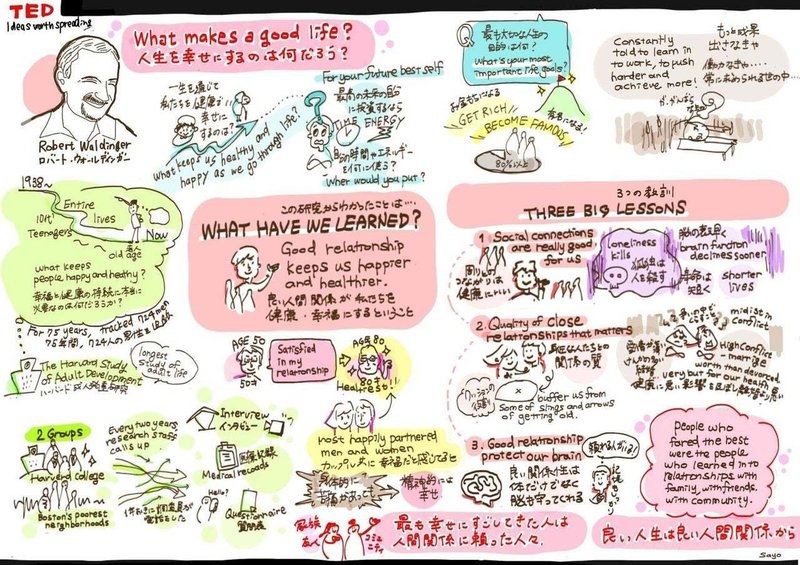 TED
Ideas worth spreading
What makes a good life?
人生を幸せにするのは何だろう?
Robert Waldinger
ロバート・ウォールディンガー
一生を通じて
私たちを健康で
幸せに
するのは?
What keeps us healthy and
happy as we go through life?
For your future best self
最高の未来の自分
に投資するなら
TIME ENERGY
自分の時間やエネルギー
を何に使う?
最も大切な人生の
目的は何?
What's your most
important life goals?
GET RICH
BECOME FAMOUS
有名になる!
80%以上
Constantly
told to learn in
to work, to push
harder and
achieve more!
もっと成果
出さなきゃ
働かなきゃ…
常に求められる世の中…
1938~
10代
Teenagers
Entire
lives
Now
老人
old age
what keeps
people happy and healthy?
幸福と健康の持続に本当に
必要なのは何だろうか?
For 75 years, tracked 724 men
75年間、724人の男性を追跡
The Harvard Study
of Adult Development
ハーバード成人発達研究
longest
study of
adult life
この研究からわかったことは…
WHAT HAVE WE LEARNED?
Good relationship
keeps us happier
and healthier.
良い人間関係が私たちを
健康・幸福にするということ
AGE 50
50才
Satisfied
in my
relationship
AGE 80
80才
Healthiest!!
most happily partnered
men and women
精神的には
幸せ
3つの教訓
THREE BIG LESSONS
1 Social connections
are really good
for us
周りとの
つながりは
健康にいい
loneliness
kills
孤独は
人を殺す
brain function
declines sooner
寿命は
短く
shorter
lives
2. Quality of close
relationships that matters
身近な人たちとの
関係の質
buffer us from
Some of slings and arrows
of getting old.
midist in
conflict
High conflict
marriage
worth than devorced
very but for our health
3. Good relationship
protect our brain
良い関係性は
体だけでなく
脳も守ってくれる
People who
fared the best
were the people
who learned in to
relationships with
family, with friends,
with community.
2 Groups
Harverd College
Boston's poorest
neighborhoods
Every two years
research staff
calls up
Interview
インタビュー
医療記録
Medical records
Hello?
Questionnaire
質問表
家族
友人
コミュ
ニティ
最も幸せにすごしてきた人は
人間関係に頼った人々。
良い人生は良い人間関係から
Sayo